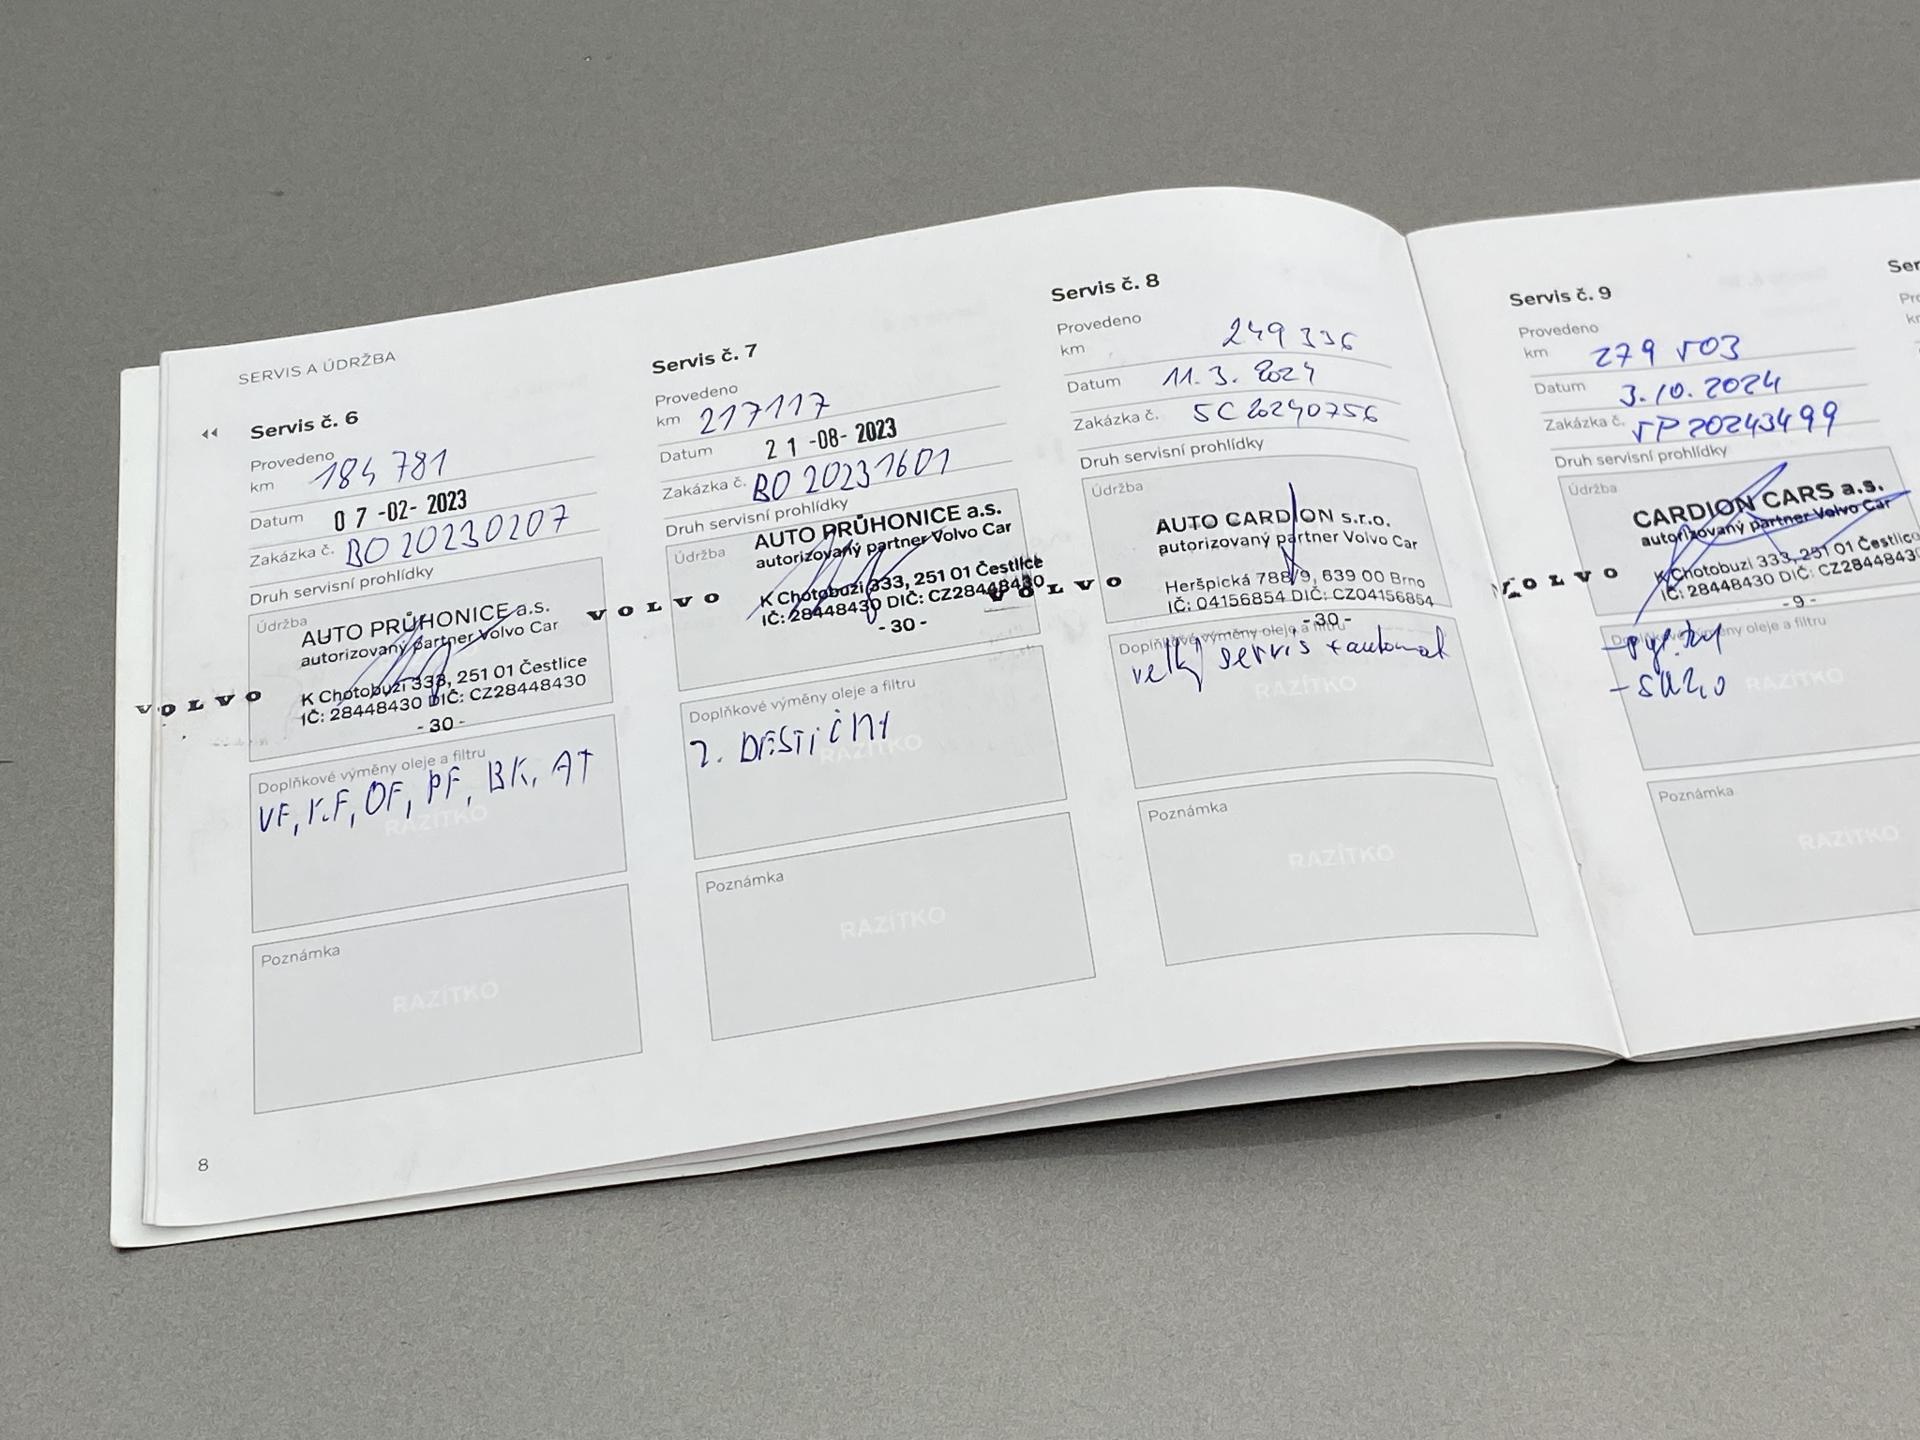 SERVIS A ÚDRŽBA
Servis č. 6
Provedeno
km 184 781
Datum 07-02-2023
Zakázka č. BO 20230207
Druh servisní prohlídky
Údržba
AUTO PRŮHONICE a.s.
autorizovaný partner Volvo Car
VOLVO
K Chotobuzi 333, 251 01 Čestlice
IČ: 28448430 DIČ: CZ28448430
- 30 -
Doplňkové výměny oleje a filtru
VF, OF, PF, BK, AT
RAZÍTKO
Poznámka
RAZÍTKO
8
Servis č. 7
Provedeno
km 217117
Datum 21-08-2023
Zakázka č. BO 20231601
Druh servisní prohlídky
Údržba
AUTO PRŮHONICE a.s.
autorizovaný partner Volvo Car
VOLVO
K Chotobuzi 333, 251 01 Čestlice
IČ: 28448430 DIČ: CZ28448430
- 30 -
Doplňkové výměny oleje a filtru
RAZÍTKO
Poznámka
RAZÍTKO
Servis č. 8
Provedeno
km 249 336
Datum 11.3.2024
Zakázka č. SC20240756
Druh servisní prohlídky
Údržba
AUTO CARDION s.r.o.
autorizovaný partner Volvo Car
VOLVO
Heršpická 788/9, 639 00 Brno
IČ: 04156854 DIČ: CZ04156854
- 30 -
Doplňkové výměny oleje a filtru
velký servis + automat
RAZÍTKO
Poznámka
RAZÍTKO
Servis č. 9
Provedeno
km 279 503
Datum 3.10.2024
Zakázka č. VP20243499
Druh servisní prohlídky
Údržba
CARDION CARS a.s.
autorizovaný partner Volvo Car
VOLVO
K Chotobuzi 333, 251 01 Čestlice
IČ: 28448430 DIČ: CZ2844843
- 9 -
Doplňkové výměny oleje a filtru
RAZÍTKO
Poznámka
RAZÍTKO